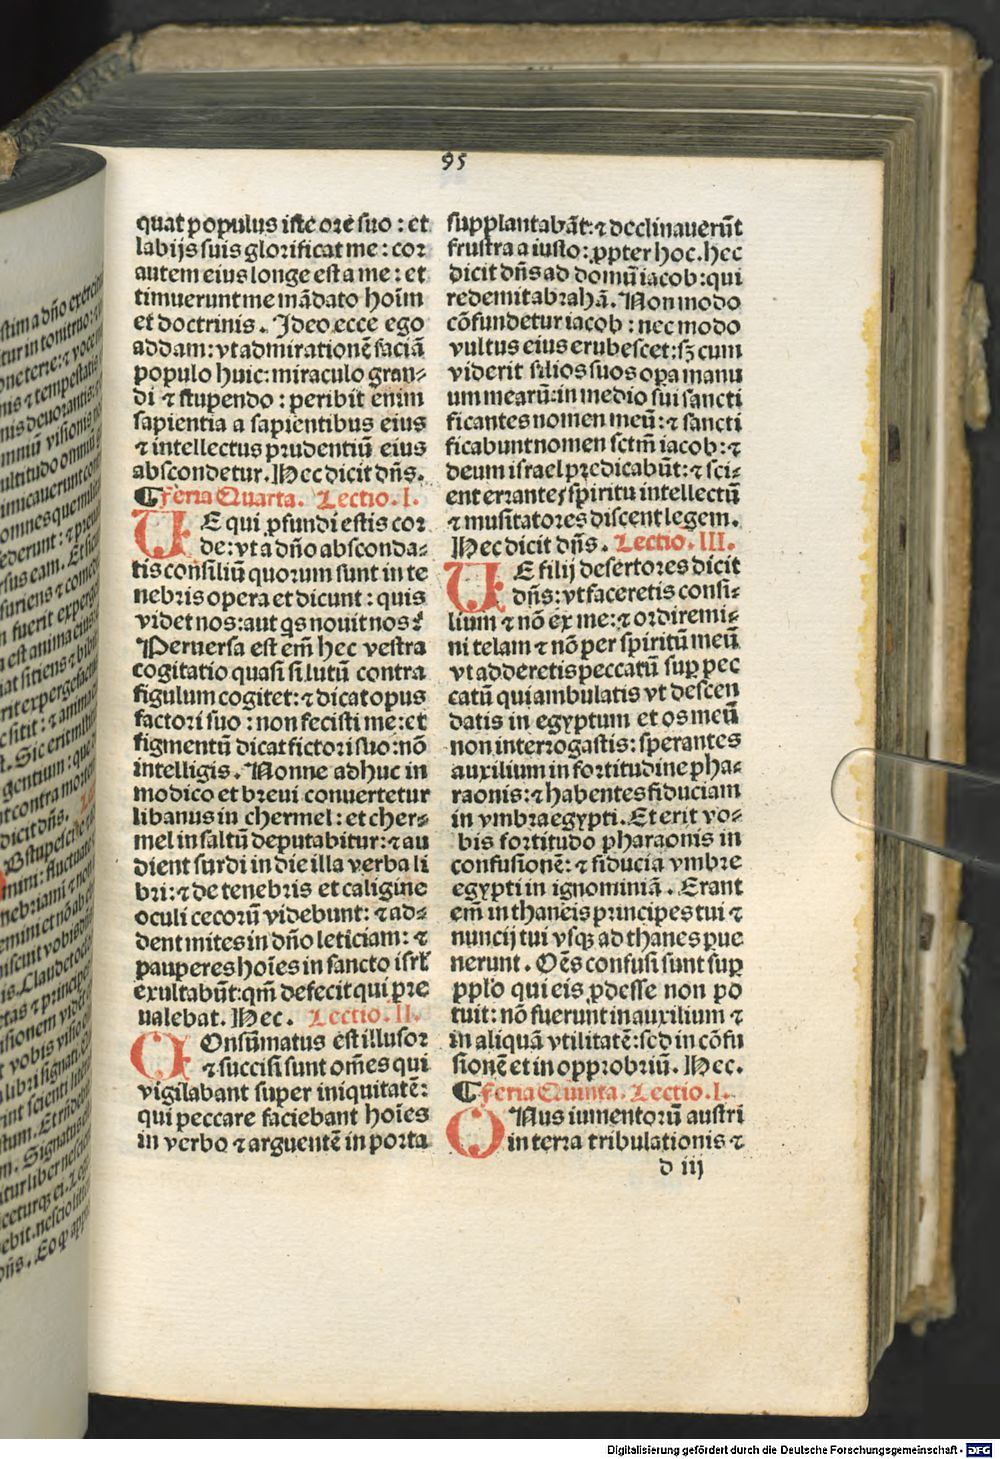 95
quat populus iste ore suo : et
labijs suis glorificat me : cor
autem eius longe est a me : et
timuerunt me mãdato hoĩm
et doctrinis . Ideo ecce ego
addam : vt admirationẽ faciã
populo huic : miraculo gran⸗
di ⁊ stupendo : peribit enim
sapientia a sapientibus eius
⁊ intellectus prudentiũ eius
abscondetur . Hec dicit dñs .
¶ feria Quarta . Lectio . I .
UE qui ꝓfundi estis cor
de : vt a dño absconda⸗
tis consiliũ quorum sunt in te
nebris opera et dicunt : quis
videt nos : aut qs nouit nos ?
Peruersa est em̃ hec vestra
cogitatio quasi si lutũ contra
figulum cogitet : ⁊ dicat opus
factori suo : non fecisti me : et
figmentũ dicat fictori suo : nõ
intelligis . Nonne adhuc in
modico et breui conuertetur
libanus in chermel : et cher⸗
mel in saltũ deputabitur : ⁊ au
dient surdi in die illa verba li
bri : ⁊ de tenebris et caligine
oculi cecorũ videbunt : ⁊ ad⸗
dent mites in dño leticiam : ⁊
pauperes hoĩes in sancto isrl̃
exultabũt : qm̃ defecit qui pre
ualebat . Hec . Lectio . II .
COnsũmatus est illusor
⁊ succisi sunt om̃es qui
vigilabant super iniquitatẽ :
qui peccare faciebant hoĩes
in verbo ⁊ arguentẽ in porta
supplantabãt : ⁊ declinauerũt
frustra a iusto : ꝓpter hoc . hec
dicit dñs ad domũ iacob : qui
redemit abrahã . Non modo
cõfundetur iacob : nec modo
vultus eius erubescet : sꝫ cum
viderit filios suos opa manu
um mearũ : in medio sui sancti
ficantes nomen meũ : ⁊ sancti
ficabunt nomen sctm̃ iacob : ⁊
deum israel predicabũt : ⁊ sci⸗
ent errantes spiritu intellectũ
⁊ musitatores discent legem .
Hec dicit dñs . Lectio . III .
UE filij desertores dicit
dñs : vt faceretis consi⸗
lium ⁊ nõ ex me : ⁊ ordiremi⸗
ni telam ⁊ nõ per spiritũ meũ
vt adderetis peccatũ suꝑ pec
catũ qui ambulatis vt descen
datis in egyptum et os meũ
non interrogastis : sperantes
auxilium in fortitudine pha⸗
raonis : ⁊ habentes fiduciam
in vmbra egypti . Et erit vo⸗
bis fortitudo pharaonis in
confusionẽ : ⁊ fiducia vmbre
egypti in ignominiã . Erant
em̃ in thaneis principes tui ⁊
nuncij tui vsqꝫ ad thanes pue
nerunt . Oẽs confusi sunt suꝑ
pplo qui eis ꝓdesse non po
tuit : nõ fuerunt in auxilium ⁊
in aliquã vtilitatẽ : sed in cõfu
sionẽ et in opprobriũ . Hec .
¶ feria Quinta . Lectio . I .
ONus iumentorũ austri
in terra tribulationis ⁊
d iij
Digitalisierung gefördert durch die Deutsche Forschungsgemeinschaft - DFG